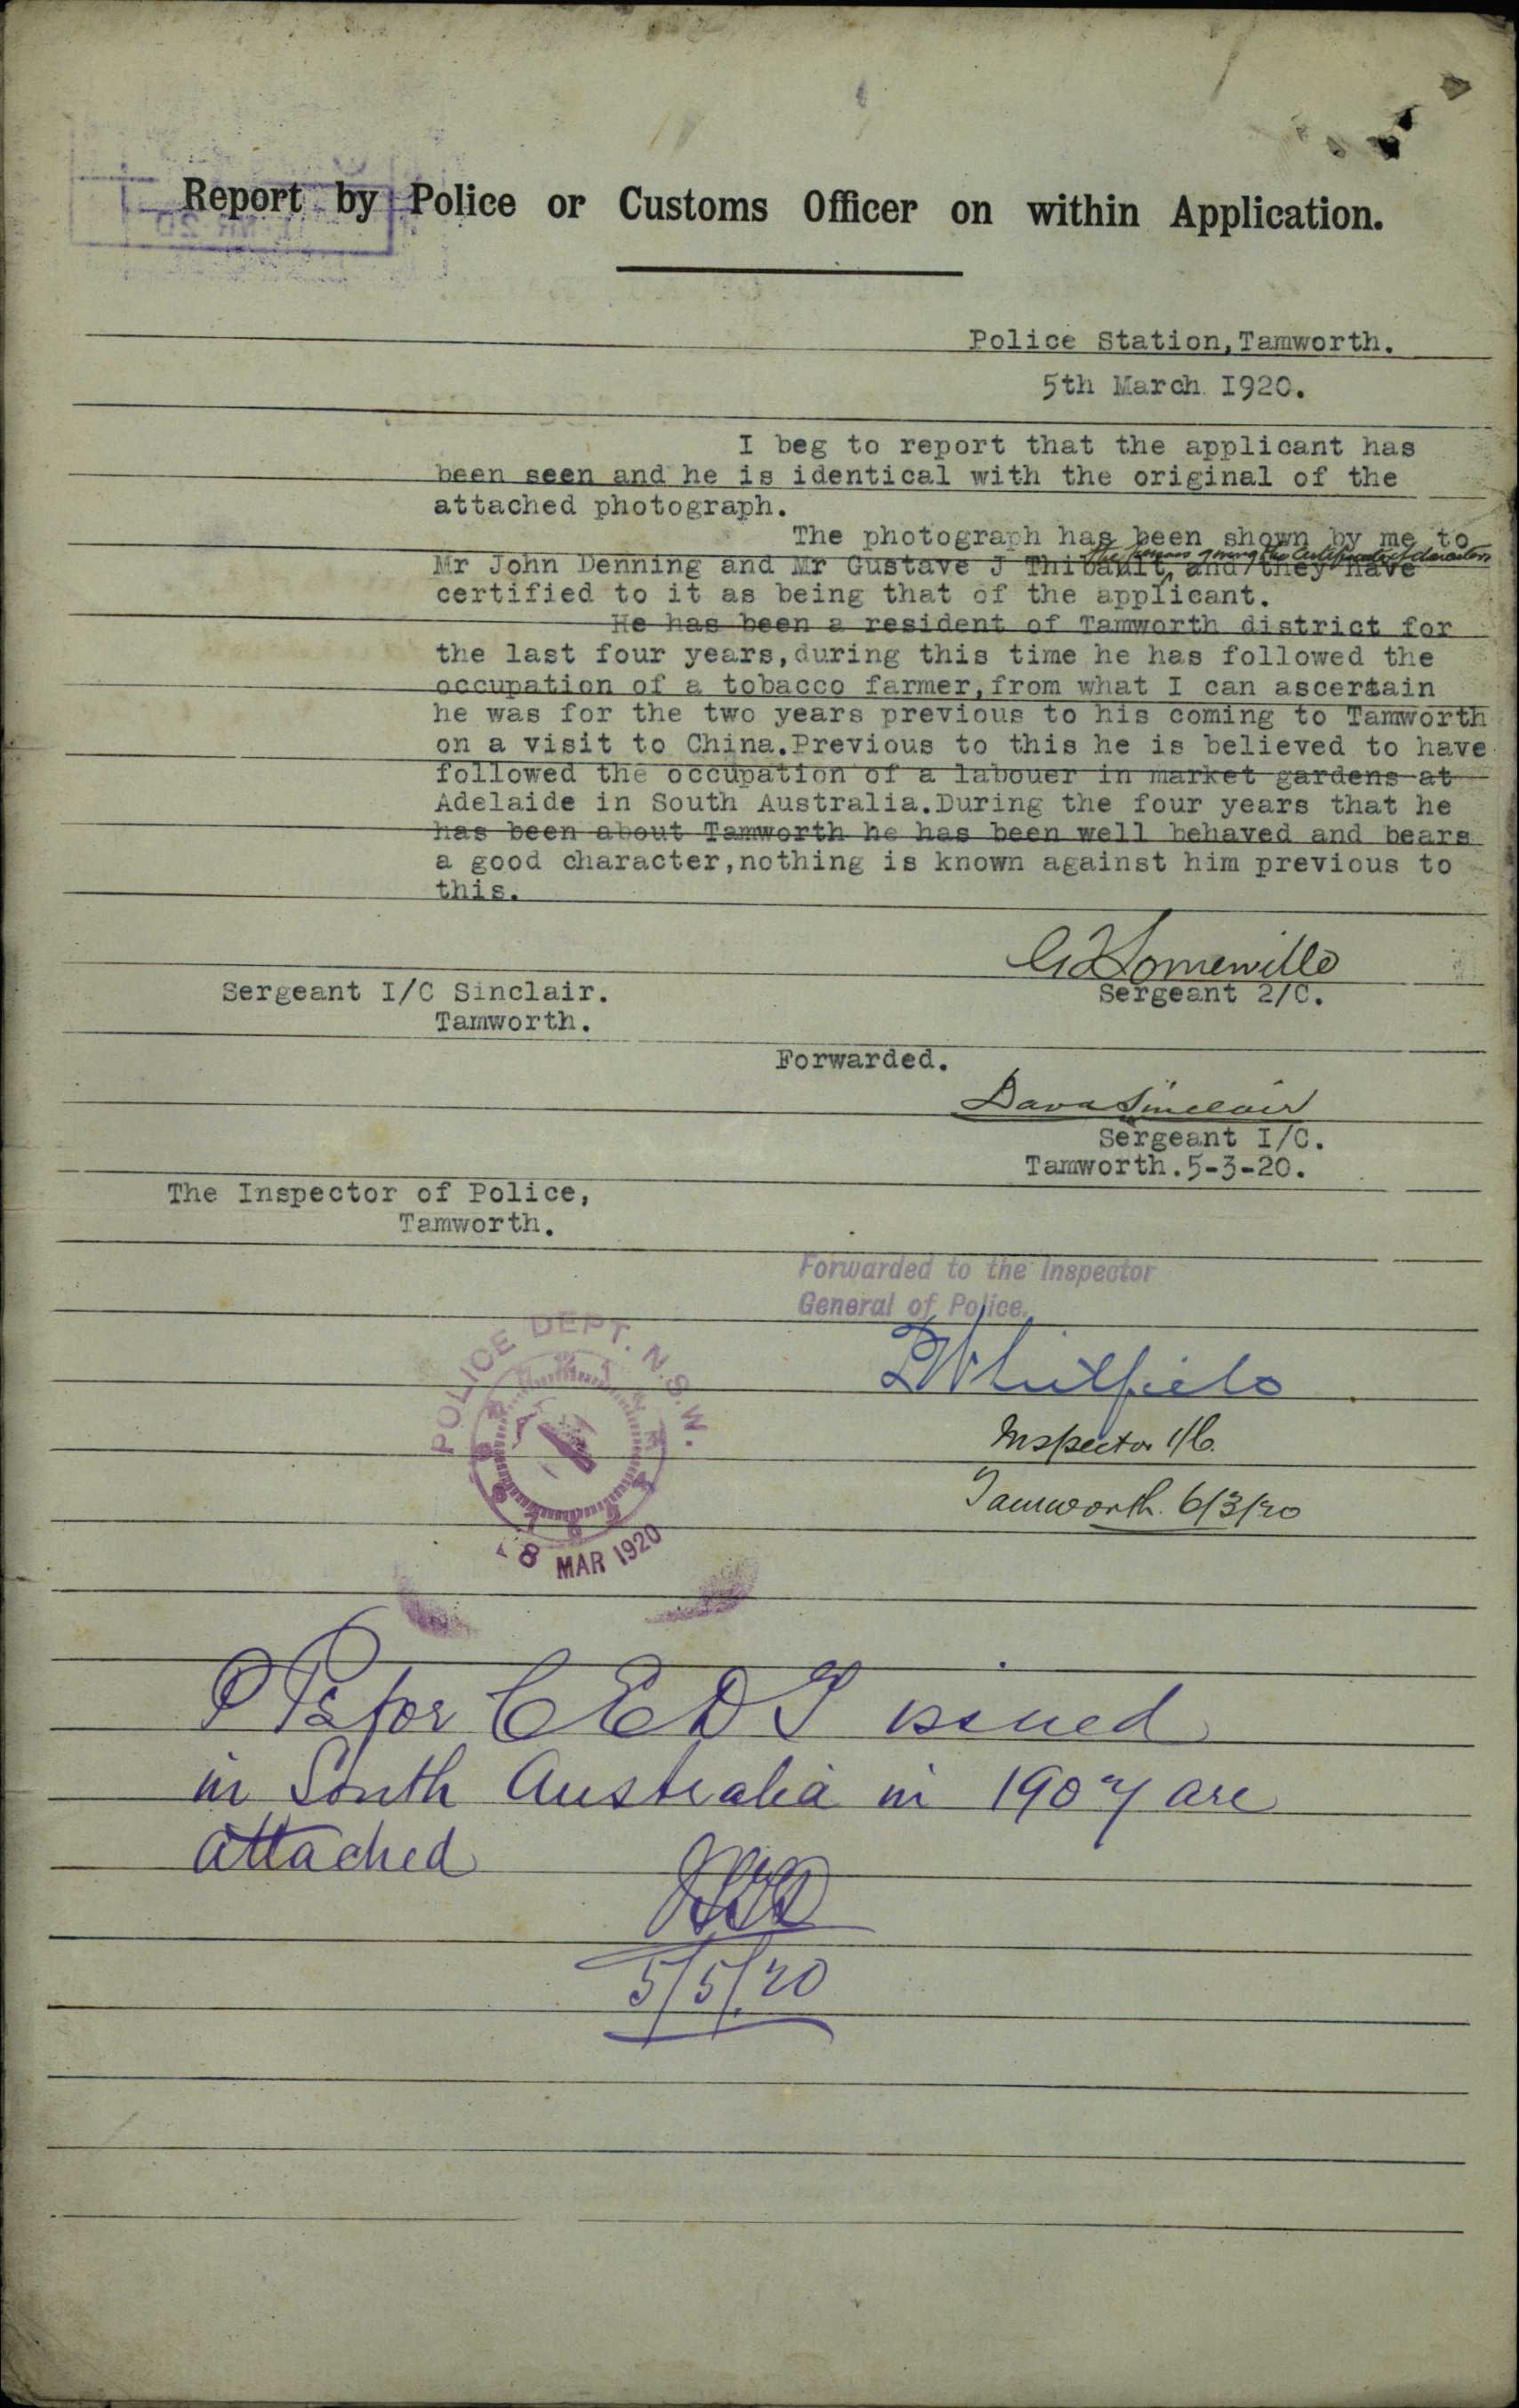 Report by Police or Customs Officer on within Application.
Police Station, Tamworth.
5th March 1920.
I beg to report that the applicant has
been seen and he is identical with the original of the
attached photograph.
The photograph has been shown by me to
the persons giving the Certificates of character
Mr John Denning and Mr Gustave J Thibault, and they have
certified to it as being that of the applicant.
He has been a resident of Tamworth district for
the last four years,during this time he has followed the
occupation of a tobacco farmer,from what I can ascertain
he was for the two years previous to his coming to Tamworth
on a visit to China.Previous to this he is believed to have
followed the occupation of a labouer in market gardens at
Adelaide in South Australia.During the four years that he
has been about Tamworth he has been well behaved and bears
a good character,nothing is known against him previous to
this.
Somerville
Sergeant I/C Sinclair.
Sergeant 2/C.
Tamworth.
Forwarded.
Sinclair
Sergeant I/C.
Tamworth.5-3-20.
The Inspector of Police,
Tamworth.
Forwarded to the Inspector
General of Police.
Whitfield
Inspector 1/C.
Tamworth. 6/3/20
POLICE DEPT. N.S.W.
8 MAR 1920
for C E D T issued
in South Australia in 1907 are
attached
5/5/20